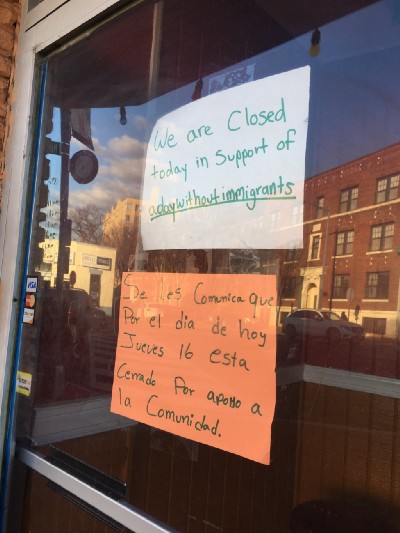 We are Closed
today in Support of
adaywithout immigrants
Se les Comunica que
Por el dia de hoy
Jueves 16 esta
Cerrado Por apollo a
la Comunidad.
VISA